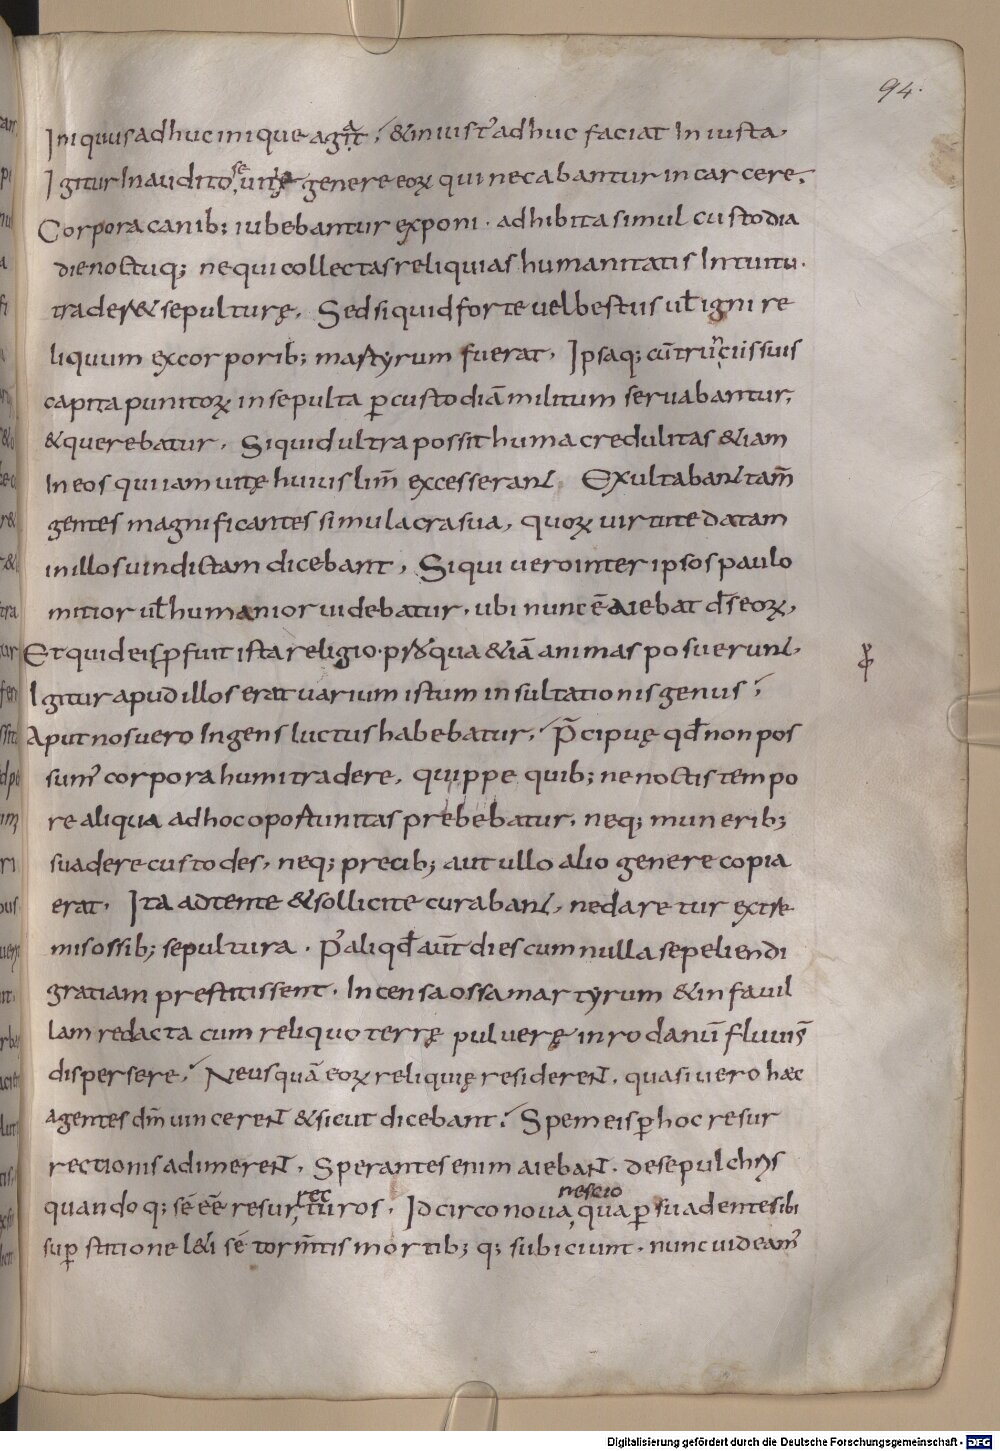 94.
Iniquus adhuc inique agat, & iniust' adhuc faciat Iniusta,
Igitur Inaudito seuitię genere eoꝝ qui necabantur in carcere,
Corpora canib; iubebantur exponi · adhibita simul custodia
die noctuq; nequi collectas reliquias humanitatis Intuitu ·
trader& sepulturę, Sed siquid forte uel bestiis uł igni re
liquum ex corporib; martyrum fuerat, Ipsaq; cū truncis suis
capita punitoꝝ insepulta ꝑ custodiā militum seruabantur,
& querebatur, Siquid ultra possit humacredulitas &iam
In eos qui iam uitę huius lim̄ excesserant Exultabant tam̄
gentes magnificantes simulacra sua, quoꝝ uirtute datam
in illos uindictam dicebant, Siqui uero inter ipsos paulo
mitior uł humanior uidebatur, ubi nunc ē aiebat d̄s eoꝝ,
Et quid eis ꝓfuit ista religio · pro qua &iā animas posuerunt,
Igitur apud illos erat uarium istum insultationis genus;
Aput nos uero Ingens luctus habebatur, P̄cipuę qđ non pos
sum' corpora humi tradere, quippe quib; ne noctis tempo
re aliqua adhoc oportunitas prebebatur, neq; munerib;
suadere custodes, neq; precib; aut ullo alio genere copia
erat, Ita adtente & sollicite curabant, ne daretur extre
mis ossib; sepultura · P' aliqđ aūt dies cum nulla sepeliendi
gratiam prestitissent, Incensa ossa martyrum & in fauil
lam redacta cum reliquo terrę puluerę in rodanū fluuiū
dispersere, Neusquā eoꝝ reliquię residerent, quasi uero haec
agentes dm̄ uincerent & sicut dicebant, Spem eis ꝑ hoc resur
rectionis adimerent, Sperantes enim aiebant · de sepulchris
quandoq; sē eē resurrecturos, Idcirco noua nescio qua ꝑsuadente sibi
suꝑstitione l&i sē torm̄tis mortib; q; subiciunt · nunc uideam'
Digitalisierung gefördert durch die Deutsche Forschungsgemeinschaft - DFG